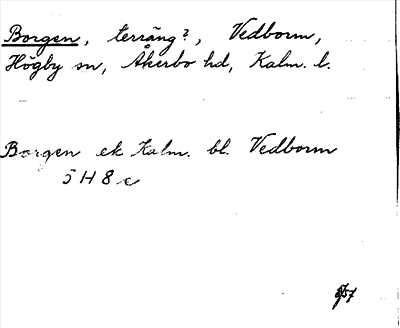 Borgen, terräng?, Vedborm,
Högby sn, Åkerbo hd, Kalm. l.
Borgen ek Kalm. bl. Vedborm
5 H 8 e